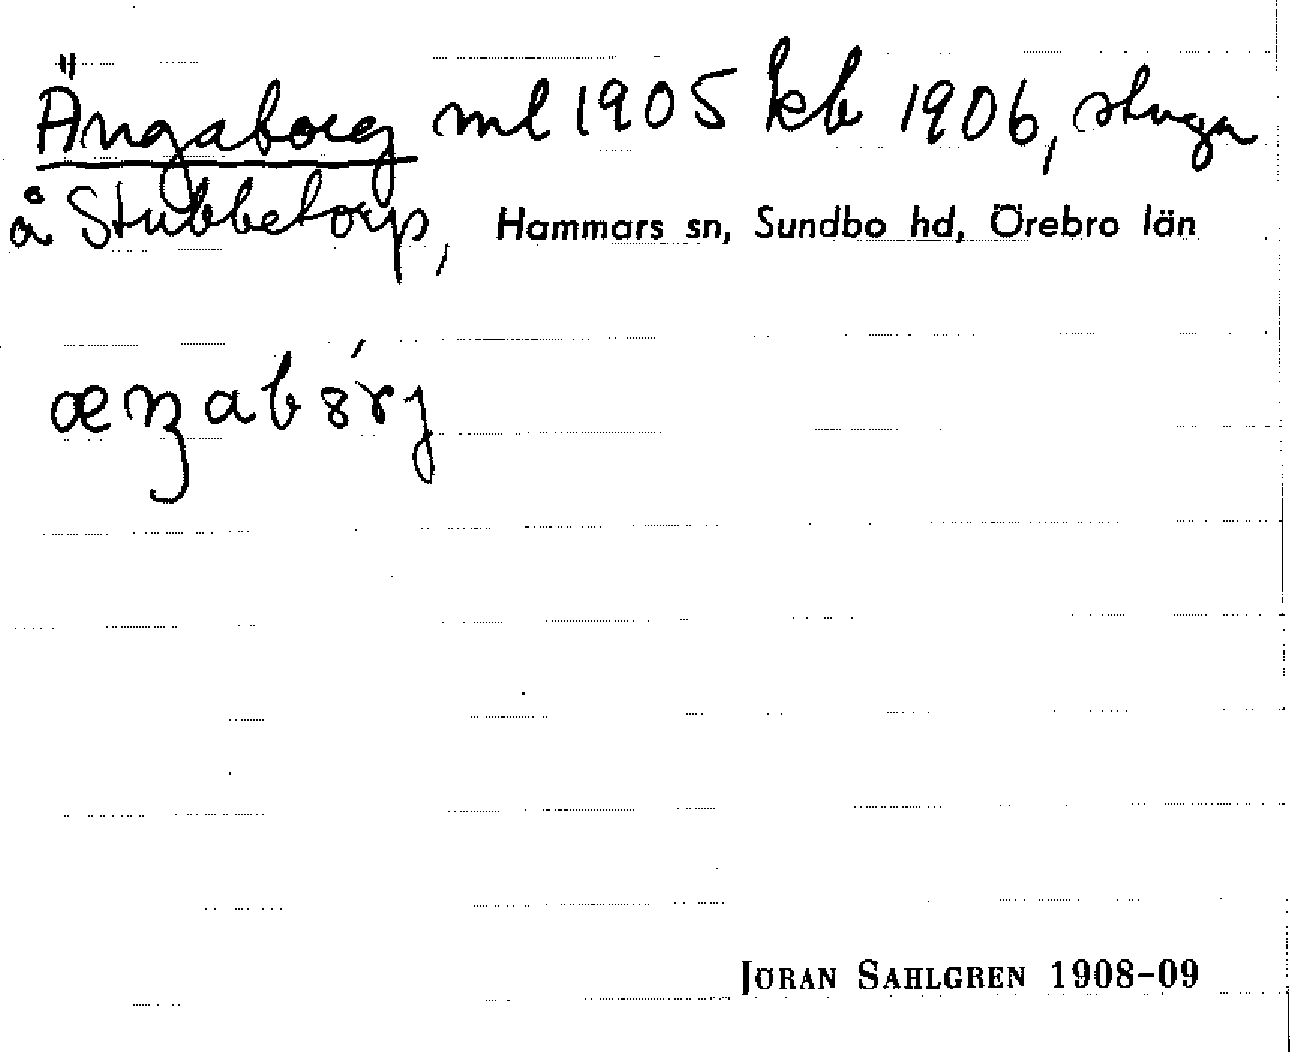 Ängaborg ml 1905 kb 1906, stuga
å Stubbetorp, Hammars sn, Sundbo hd, Örebro län
æŋabȣ́rj
JÖRAN SAHLGREN 1908-09